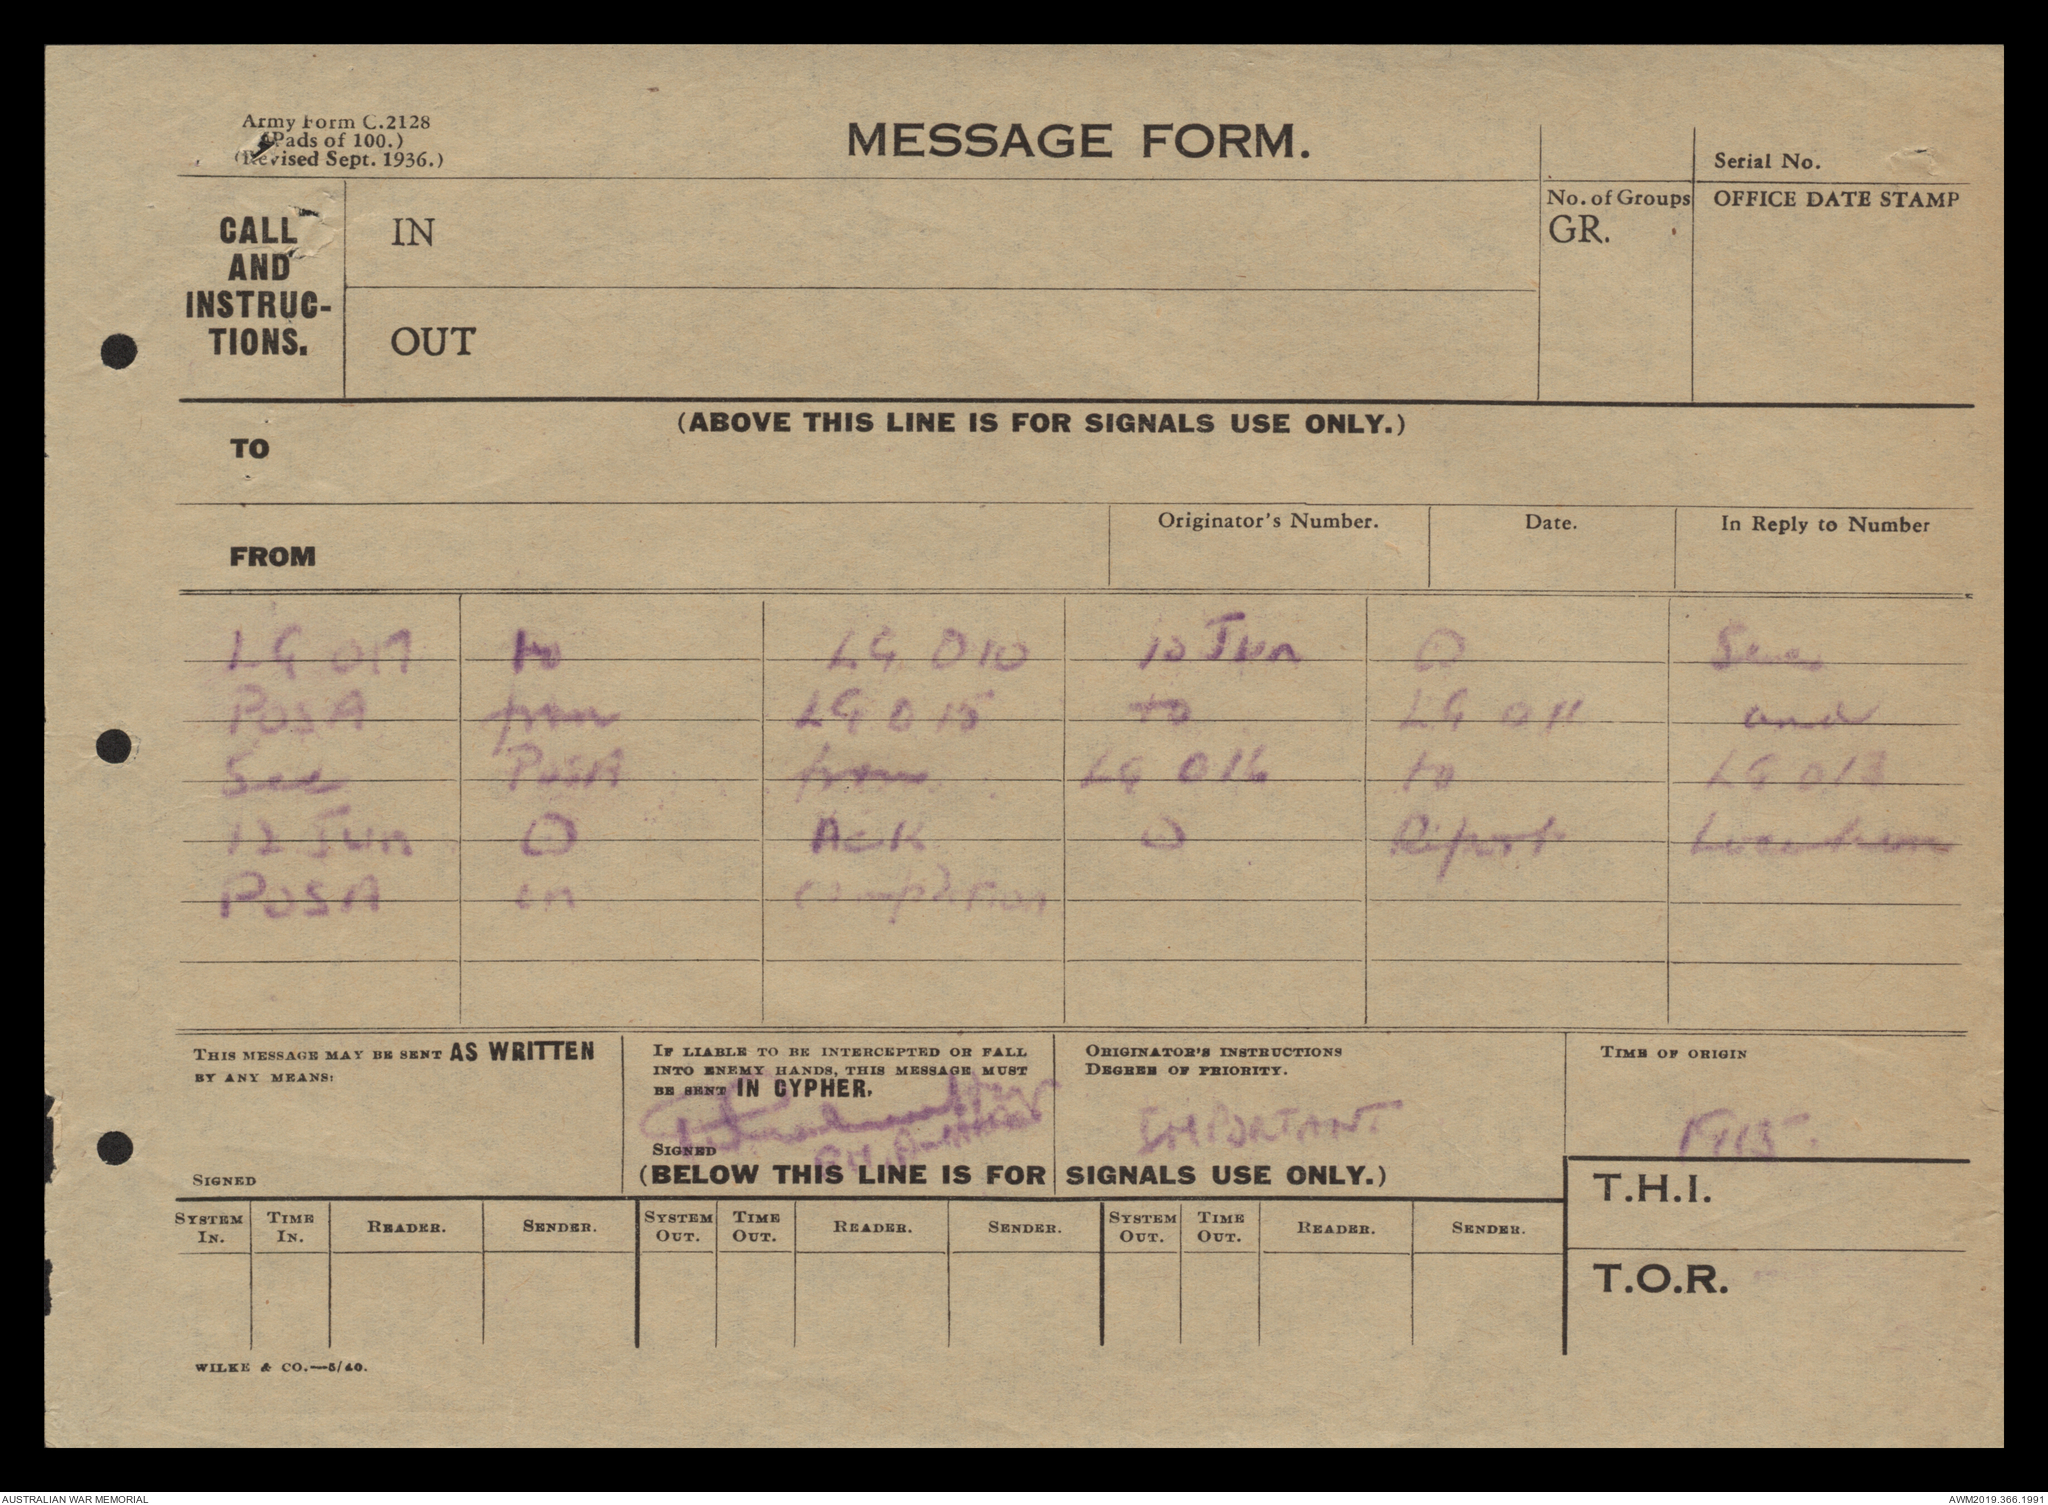 Army Form C.2128
(Pads of 100.)
(Revised Sept. 1936.)
MESSAGE FORM.
Serial No.
CALL
AND
INSTRUC-
TIONS.
IN
OUT
No. of Groups
GR.
OFFICE DATE STAMP
(ABOVE THIS LINE IS FOR SIGNALS USE ONLY.)
TO
FROM
Originator's Number.
Date.
In Reply to Number
LG 017 to LG 010 10 Jun O
POSA from LG 015 to LG 011 and
POSA from LG 016 to LG 013
12 Jun O Ack O Report Location
POSA on completion
THIS MESSAGE MAY BE SENT AS WRITTEN
BY ANY MEANS:
SIGNED
IF LIABLE TO BE INTERCEPTED OR FALL
INTO ENEMY HANDS, THIS MESSAGE MUST
BE SENT IN CYPHER.
SIGNED
ORIGINATOR'S INSTRUCTIONS
DEGREE OF PRIORITY.
IMPORTANT
TIME OF ORIGIN
(BELOW THIS LINE IS FOR SIGNALS USE ONLY.)
T.H.I.
T.O.R.
SYSTEM IN. TIME IN. READER. SENDER. SYSTEM OUT. TIME OUT. READER. SENDER. SYSTEM OUT. TIME OUT. READER. SENDER.
WILKE & CO.—5/40.
AUSTRALIAN WAR MEMORIAL
AWM2019.366.1991